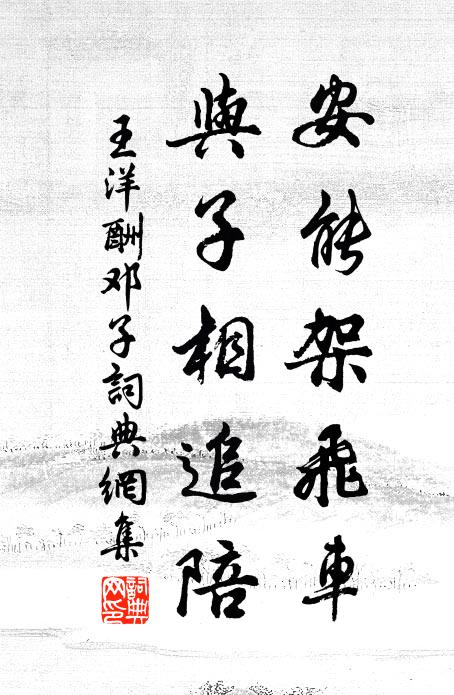 安能架飛車
與子相追陪
王洋酬邓子詞典網集
詞典网印